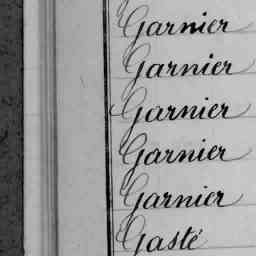 Garnier
Garnier
Garnier
Garnier
Garnier
Gasté